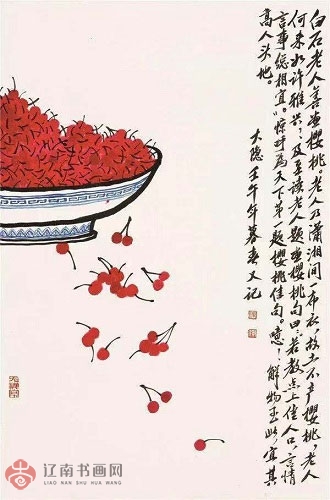 白石老人善画樱桃。老人乃潇湘间一布衣，故土不产樱桃，老人
何来如许雅兴？及至读老人题画樱桃句曰：若教点上佳人口，言情
言事总相宜。惊呼为天下第一题樱桃佳句。噫！解物至此，宜其
高人头地。
大隐壬午年暮春又记
辽南书画网
LIAO NAN SHU HUA WANG